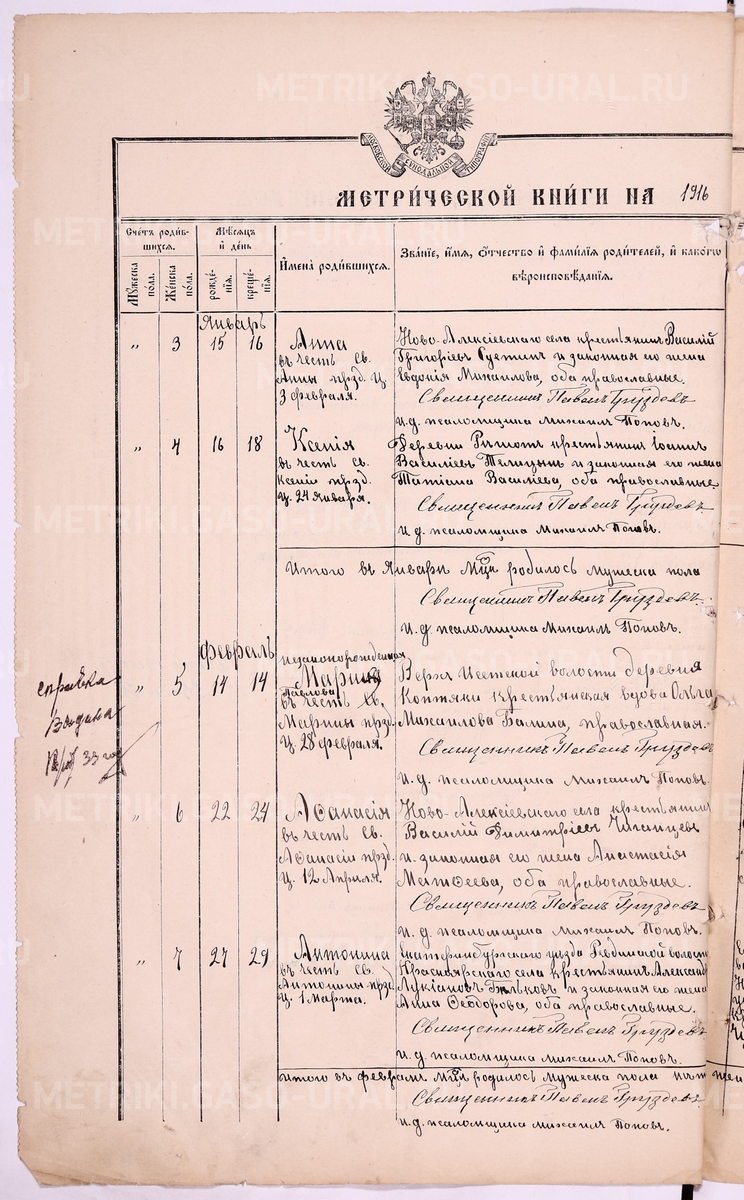 МОСКОВСКОЙ СѴНОДАЛЬНОЙ ТИПОГРАФІИ
МЕТРИ́ЧЕСКОЙ КНИ́ГИ НА 1916
Сче́тъ роди́в-
шихся.
Мѣ́сяцъ
и҆ де́нь
И҆мена̀ роди́вшихся.
Зва́нїе, и҆́мя, ѻ҆́тчество и҆ фами́лїя роди́телей, и҆ како́гѡ
вѣроисповѣ́данїя.
Мꙋ́жеска
по́ла.
Же́нска
по́ла.
рожде́-
нїя.
креще́-
нїя.
Январь
" 3 15 16 Анна
въ честь Св.
Анны прзд. Ц.
3 февраля.
Ново-Алексіевскаго села крестьянинъ Василій
Григоріевъ Суетинъ и законная его жена
Евдокія Михаилова, оба православные.
Священникъ Павелъ Груздевъ
И. д. псаломщика Михаилъ Поповъ.
" 4 16 18 Ксенія
въ честь Св.
Ксеніи прзд.
Ц. 24 января.
Деревни крестьянинъ Іоаннъ
Василіевъ Телицынъ и законная его жена
Татіана Василіева, оба православные.
Священникъ Павелъ Груздевъ.
И. д. псаломщика Михаилъ Поповъ.
Итого въ Январѣ Мцѣ родилось мужеска пола
Священникъ Павелъ Груздевъ.
И. д. псаломщика Михаилъ Поповъ.
Февраль
справка
" 5 14 14 незаконорожденная
Марина
Павлова
въ честь Св.
Марины прзд.
Ц. 28 февраля.
Верхъ Исетской волости деревня
Коптяки крестьянская вдова Ольга
Михаилова Балина, православная.
Священникъ Павелъ Груздевъ
И. д. псаломщика Михаилъ Поповъ.
" 6 22 24 Аѳанасія
въ честь Св.
Аѳанасіи прзд.
Ц. 12 Апрѣля.
Ново-Алексіевскаго села крестьянинъ
Василій Димитріевъ Чиганцевъ
и законная его жена Анастасія
Матѳеева, оба православные.
Священникъ Павелъ Груздевъ
И. д. псаломщика Михаилъ Поповъ.
" 7 27 29 Антонина
въ честь Св.
Антонины прзд.
Ц. 1 Марта.
Екатеринбургскаго уѣзда Ревдинской волости
Красноярскаго села крестьянинъ Александръ
Лукіановъ Бѣльковъ и законная его жена
Анна Ѳеодорова, оба православные.
Священникъ Павелъ Груздевъ
И. д. псаломщика Михаилъ Поповъ.
Итого въ февралѣ Мцѣ родилось мужеска пола нѣтъ
Священникъ Павелъ Груздевъ
И. д. псаломщика Михаилъ Поповъ.
METRIKI.GASO-URAL.RU